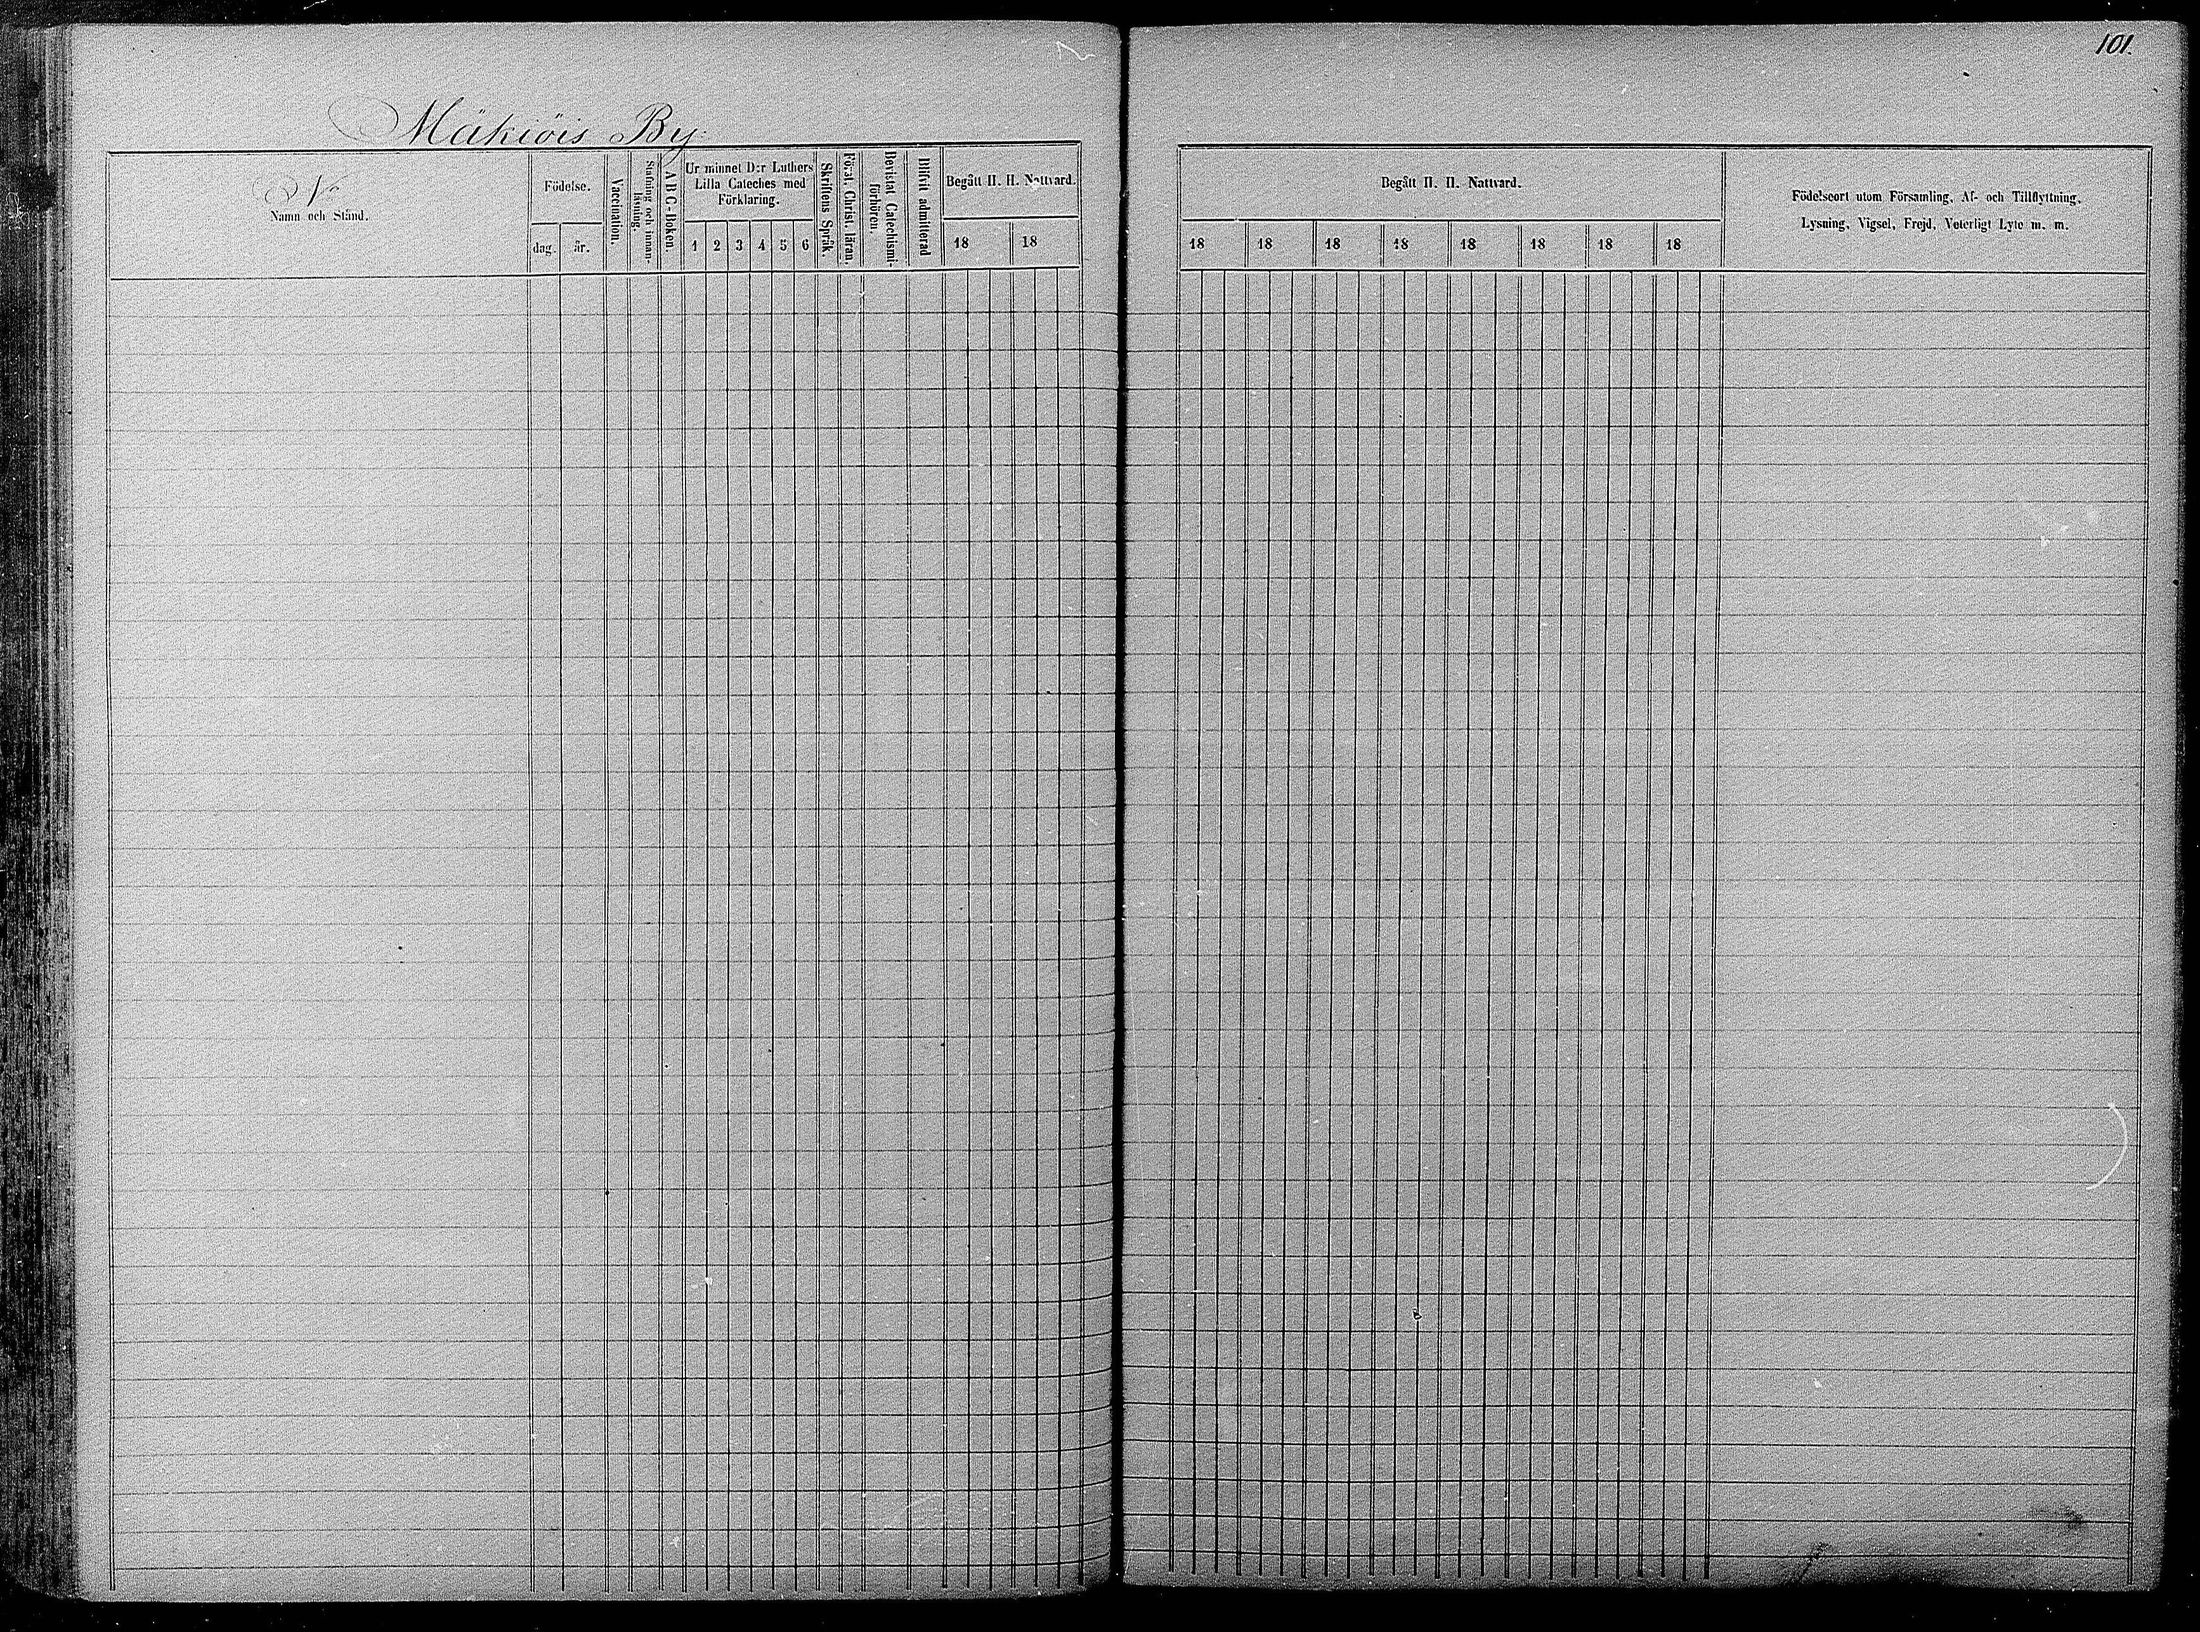 101.
Mäkiöis By.
No
Namn och Stånd.
Födelse.
dag. år.
Vaccination.
Stafning och innan-
läsning.
A B C-Boken.
Ur minnet D:r Luthers
Lilla Cateches med
Förklaring.
1 2 3 4 5 6
Skriftens Språk.
Först. Christ. läran.
Bevistat Catechismi-
förhören.
Blifvit admitterad
Begått H. H. Nattvard.
18 18
Begått H. H. Nattvard.
18 18 18 18 18 18 18 18
Födelseort utom Församling, Af- och Tillflyttning,
Lysning, Vigsel, Frejd, Veterligt Lyte m. m.